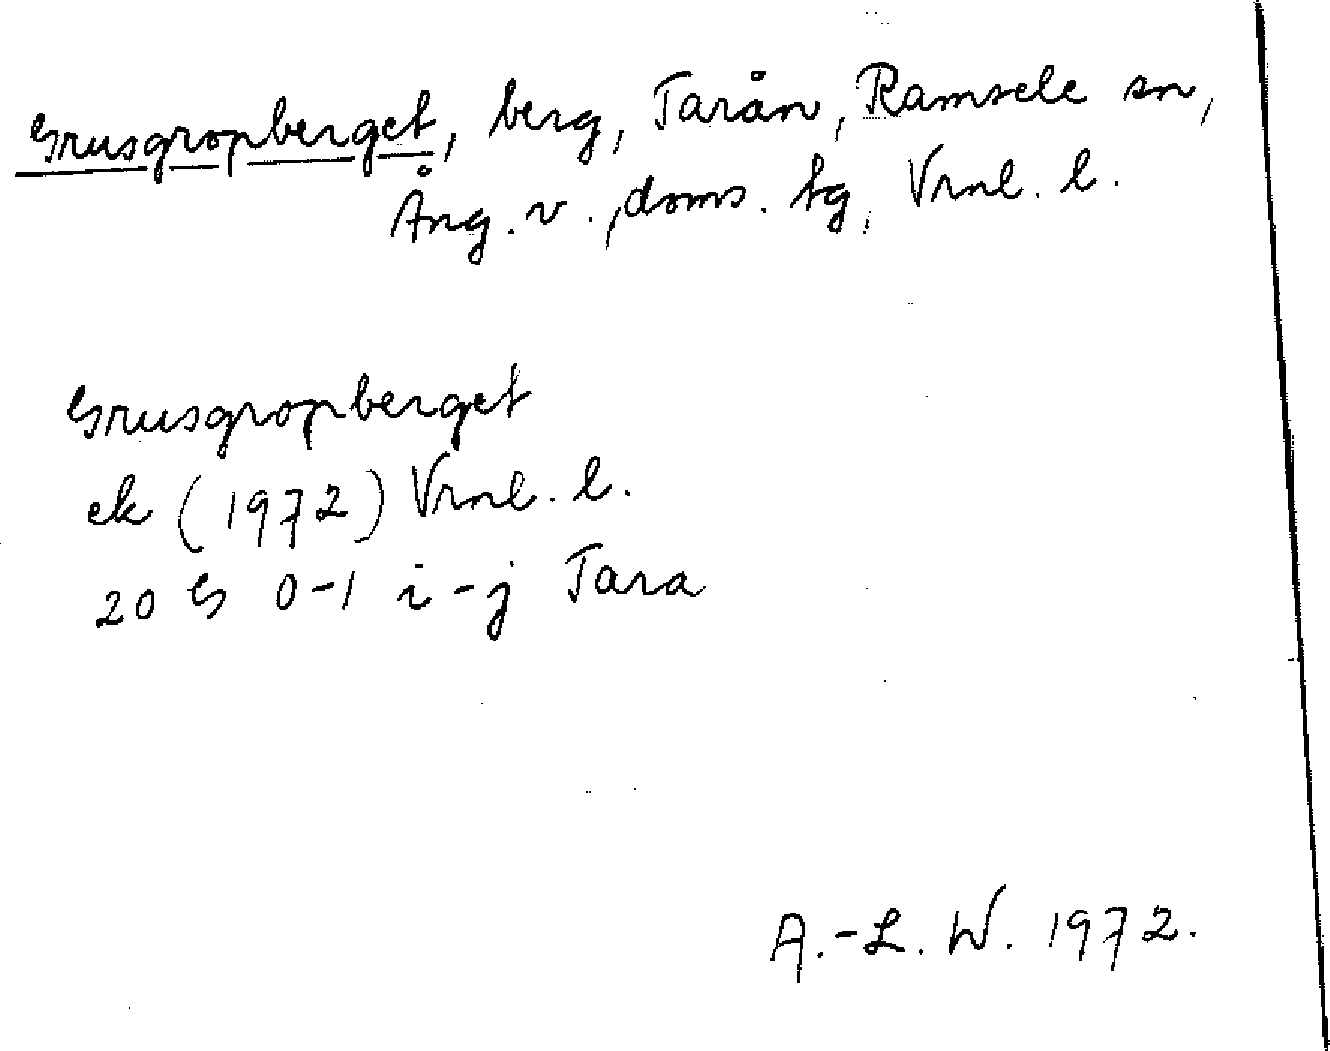 Grusgropberget, berg, Tarån, Ramsele sn,
Ång. v., doms. tg, Vrnl. l.
Grusgropberget
ek (1972) Vrnl. l.
20 G 0-1 i-j Tara
A.-L. W. 1972.